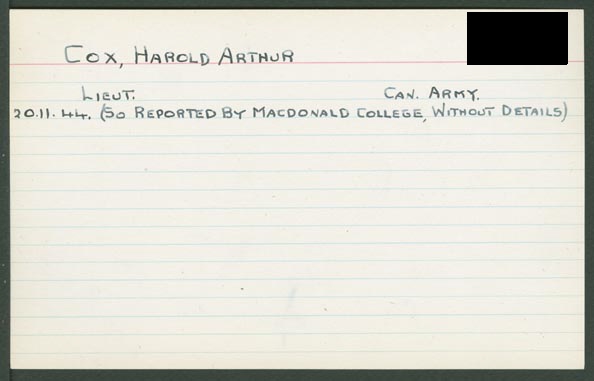 Cox, Harold Arthur
Lieut. Can. Army.
20.11.44. (So Reported By Macdonald College, Without Details)